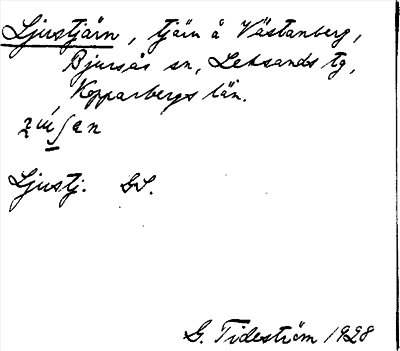 Ljustjärn, tjärn å Västanberg,
Bjursås sn, Leksands tg,
Kopparbergs län.
Ljustj. GS.
G. Tideström 1928